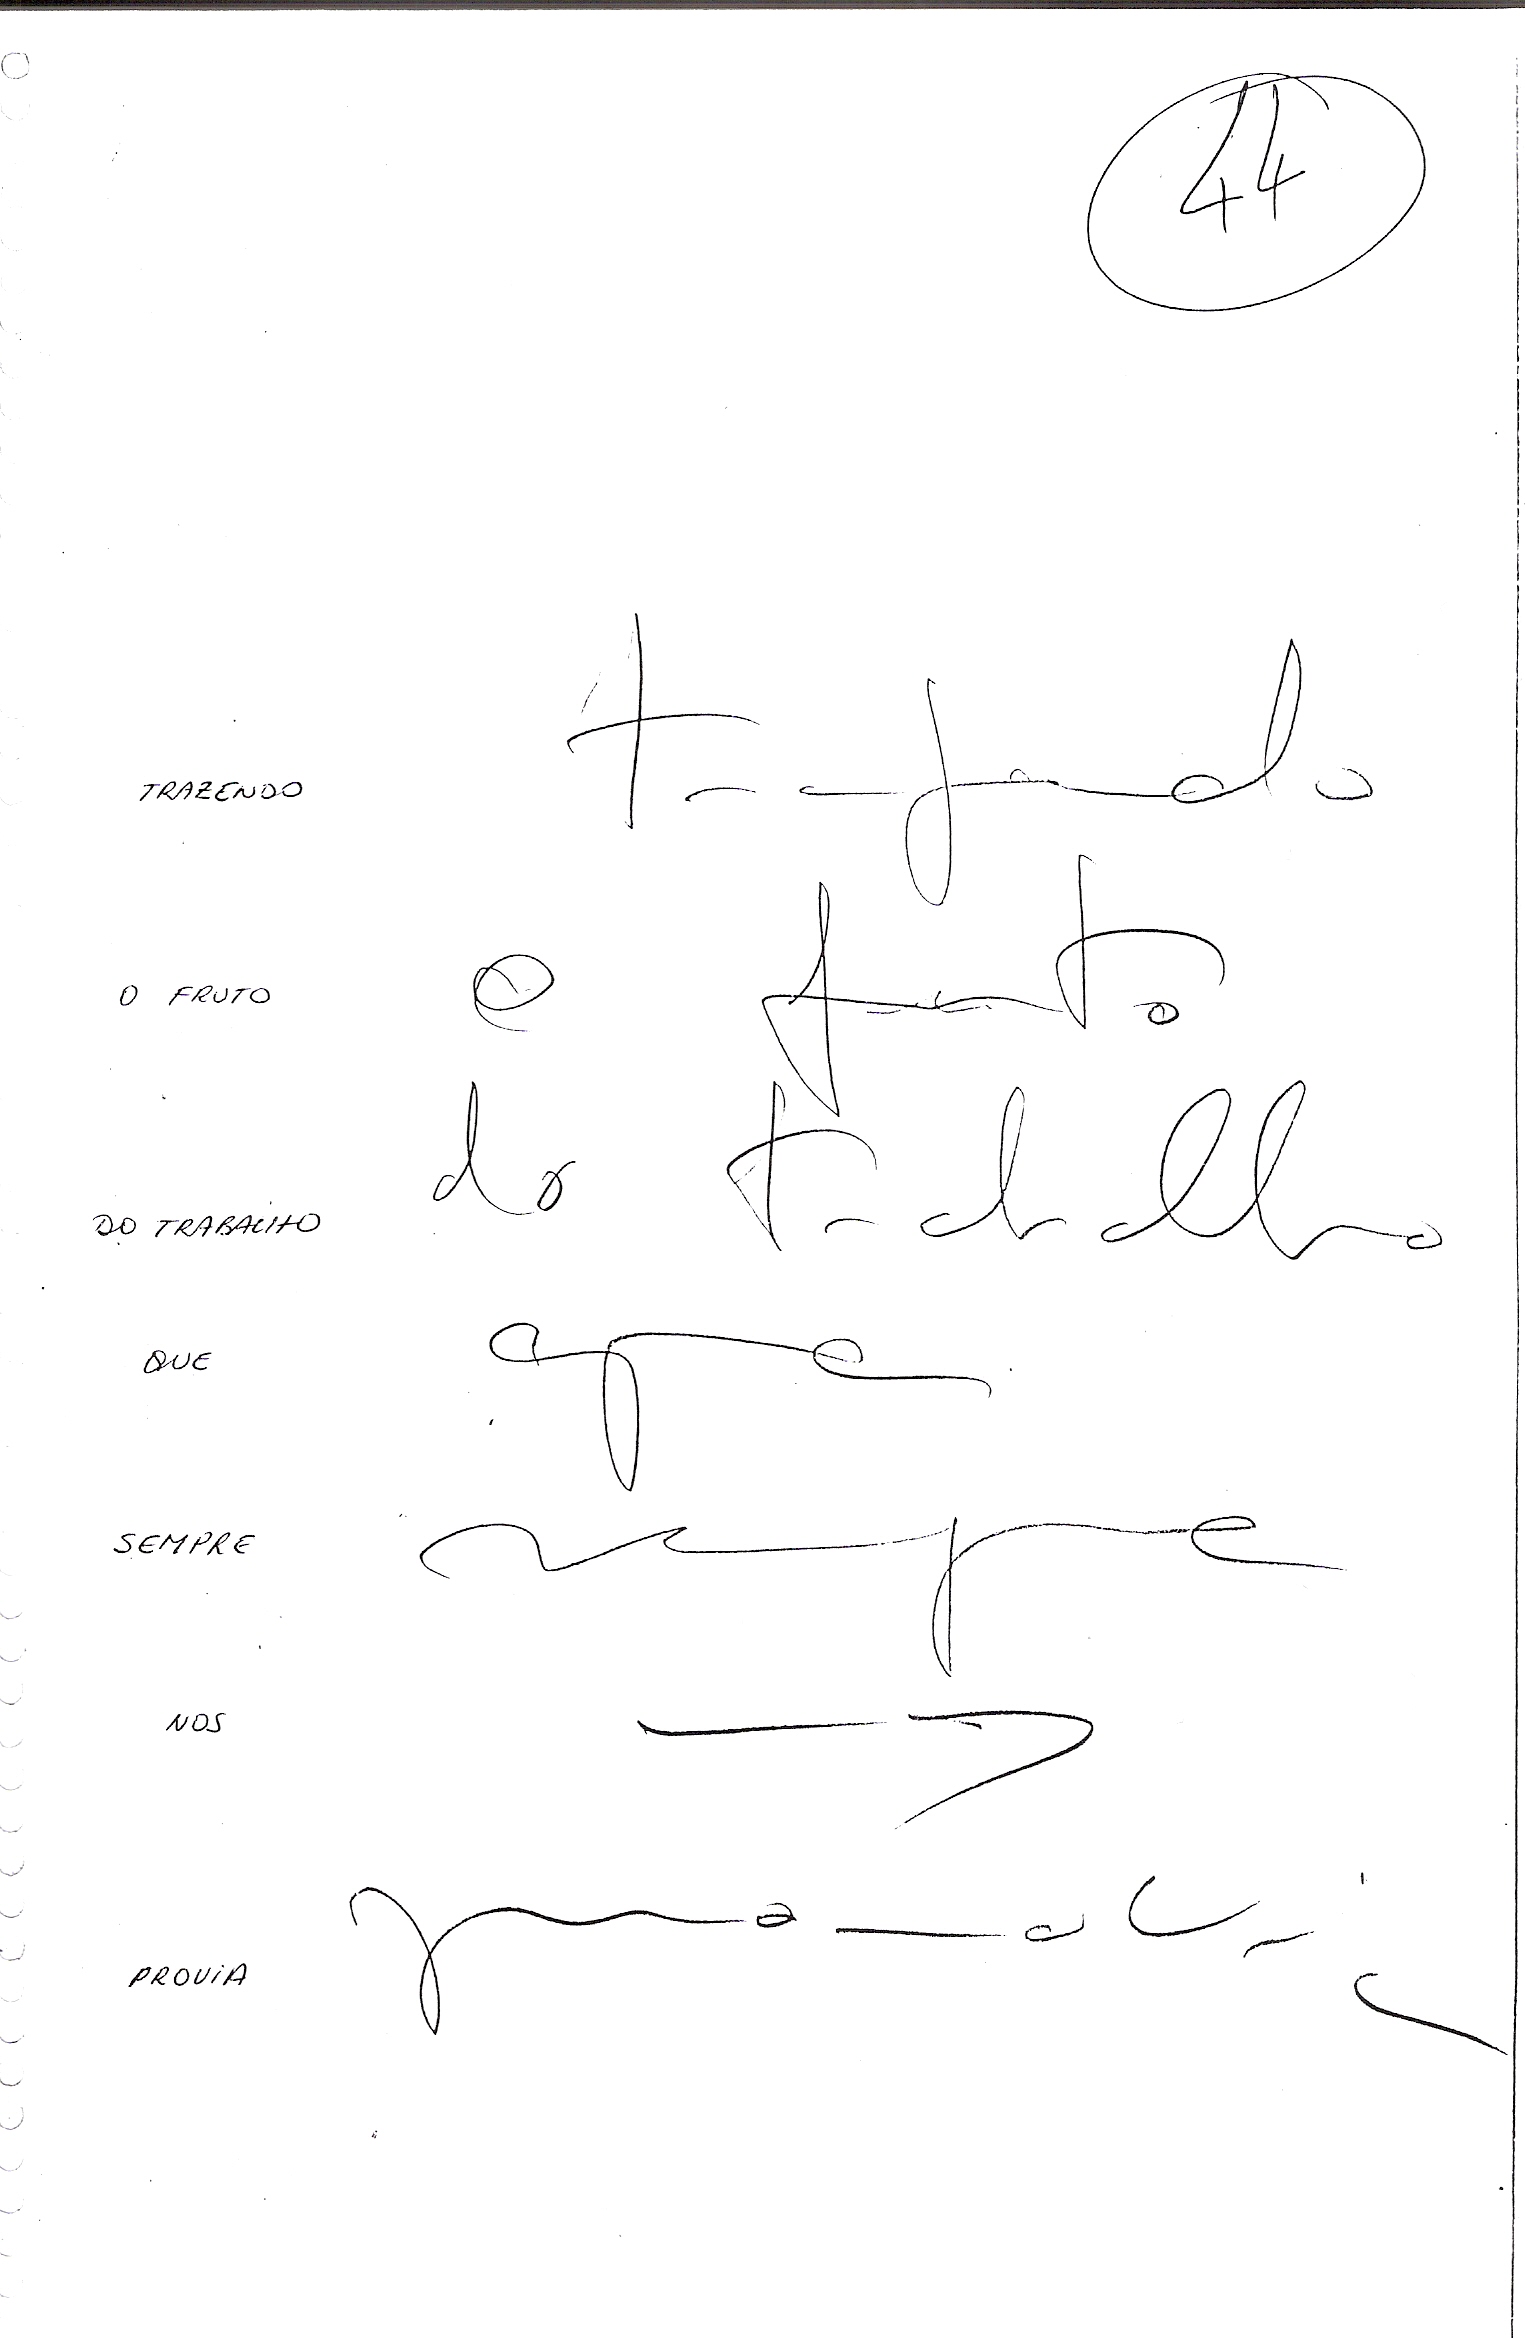 44
TRAZENDO trazendo
O FRUTO o fruto
DO TRABALHO do trabalho
QUE que
SEMPRE sempre
NOS nos
PROVIA